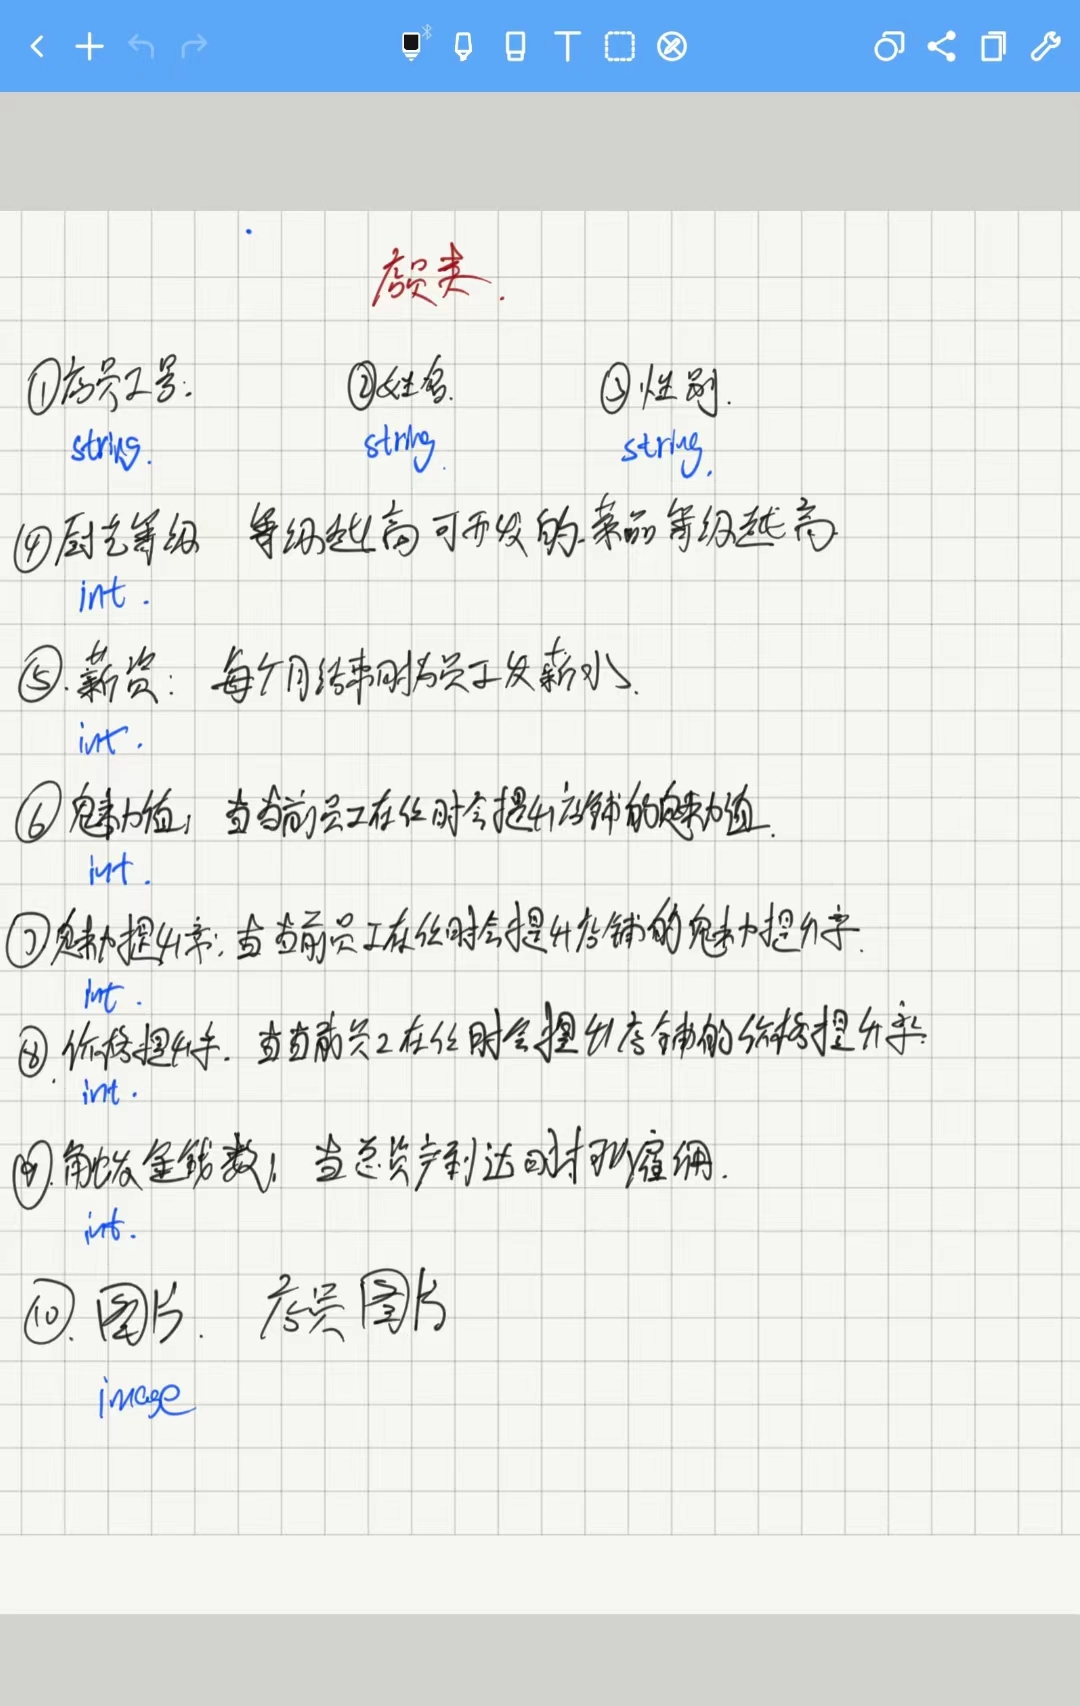 店员类.
①店员工号: ②姓名. ③性别.
string. string. string.
④厨艺等级 等级越高可开发的菜品等级越高
int.
⑤.薪资: 每个月结束时为员工发薪水.
int.
⑥魅力值: 当当前员工在任时会提升店铺的魅力值.
int.
⑦魅力提升率: 当当前员工在任时会提升店铺的魅力提升率.
int.
⑧.价格提升率. 当当前员工在任时会提升店铺的价格提升率.
int.
⑨.触发金钱数: 当总资产到达时可雇佣.
int.
⑩.图片. 店员图片
image
T